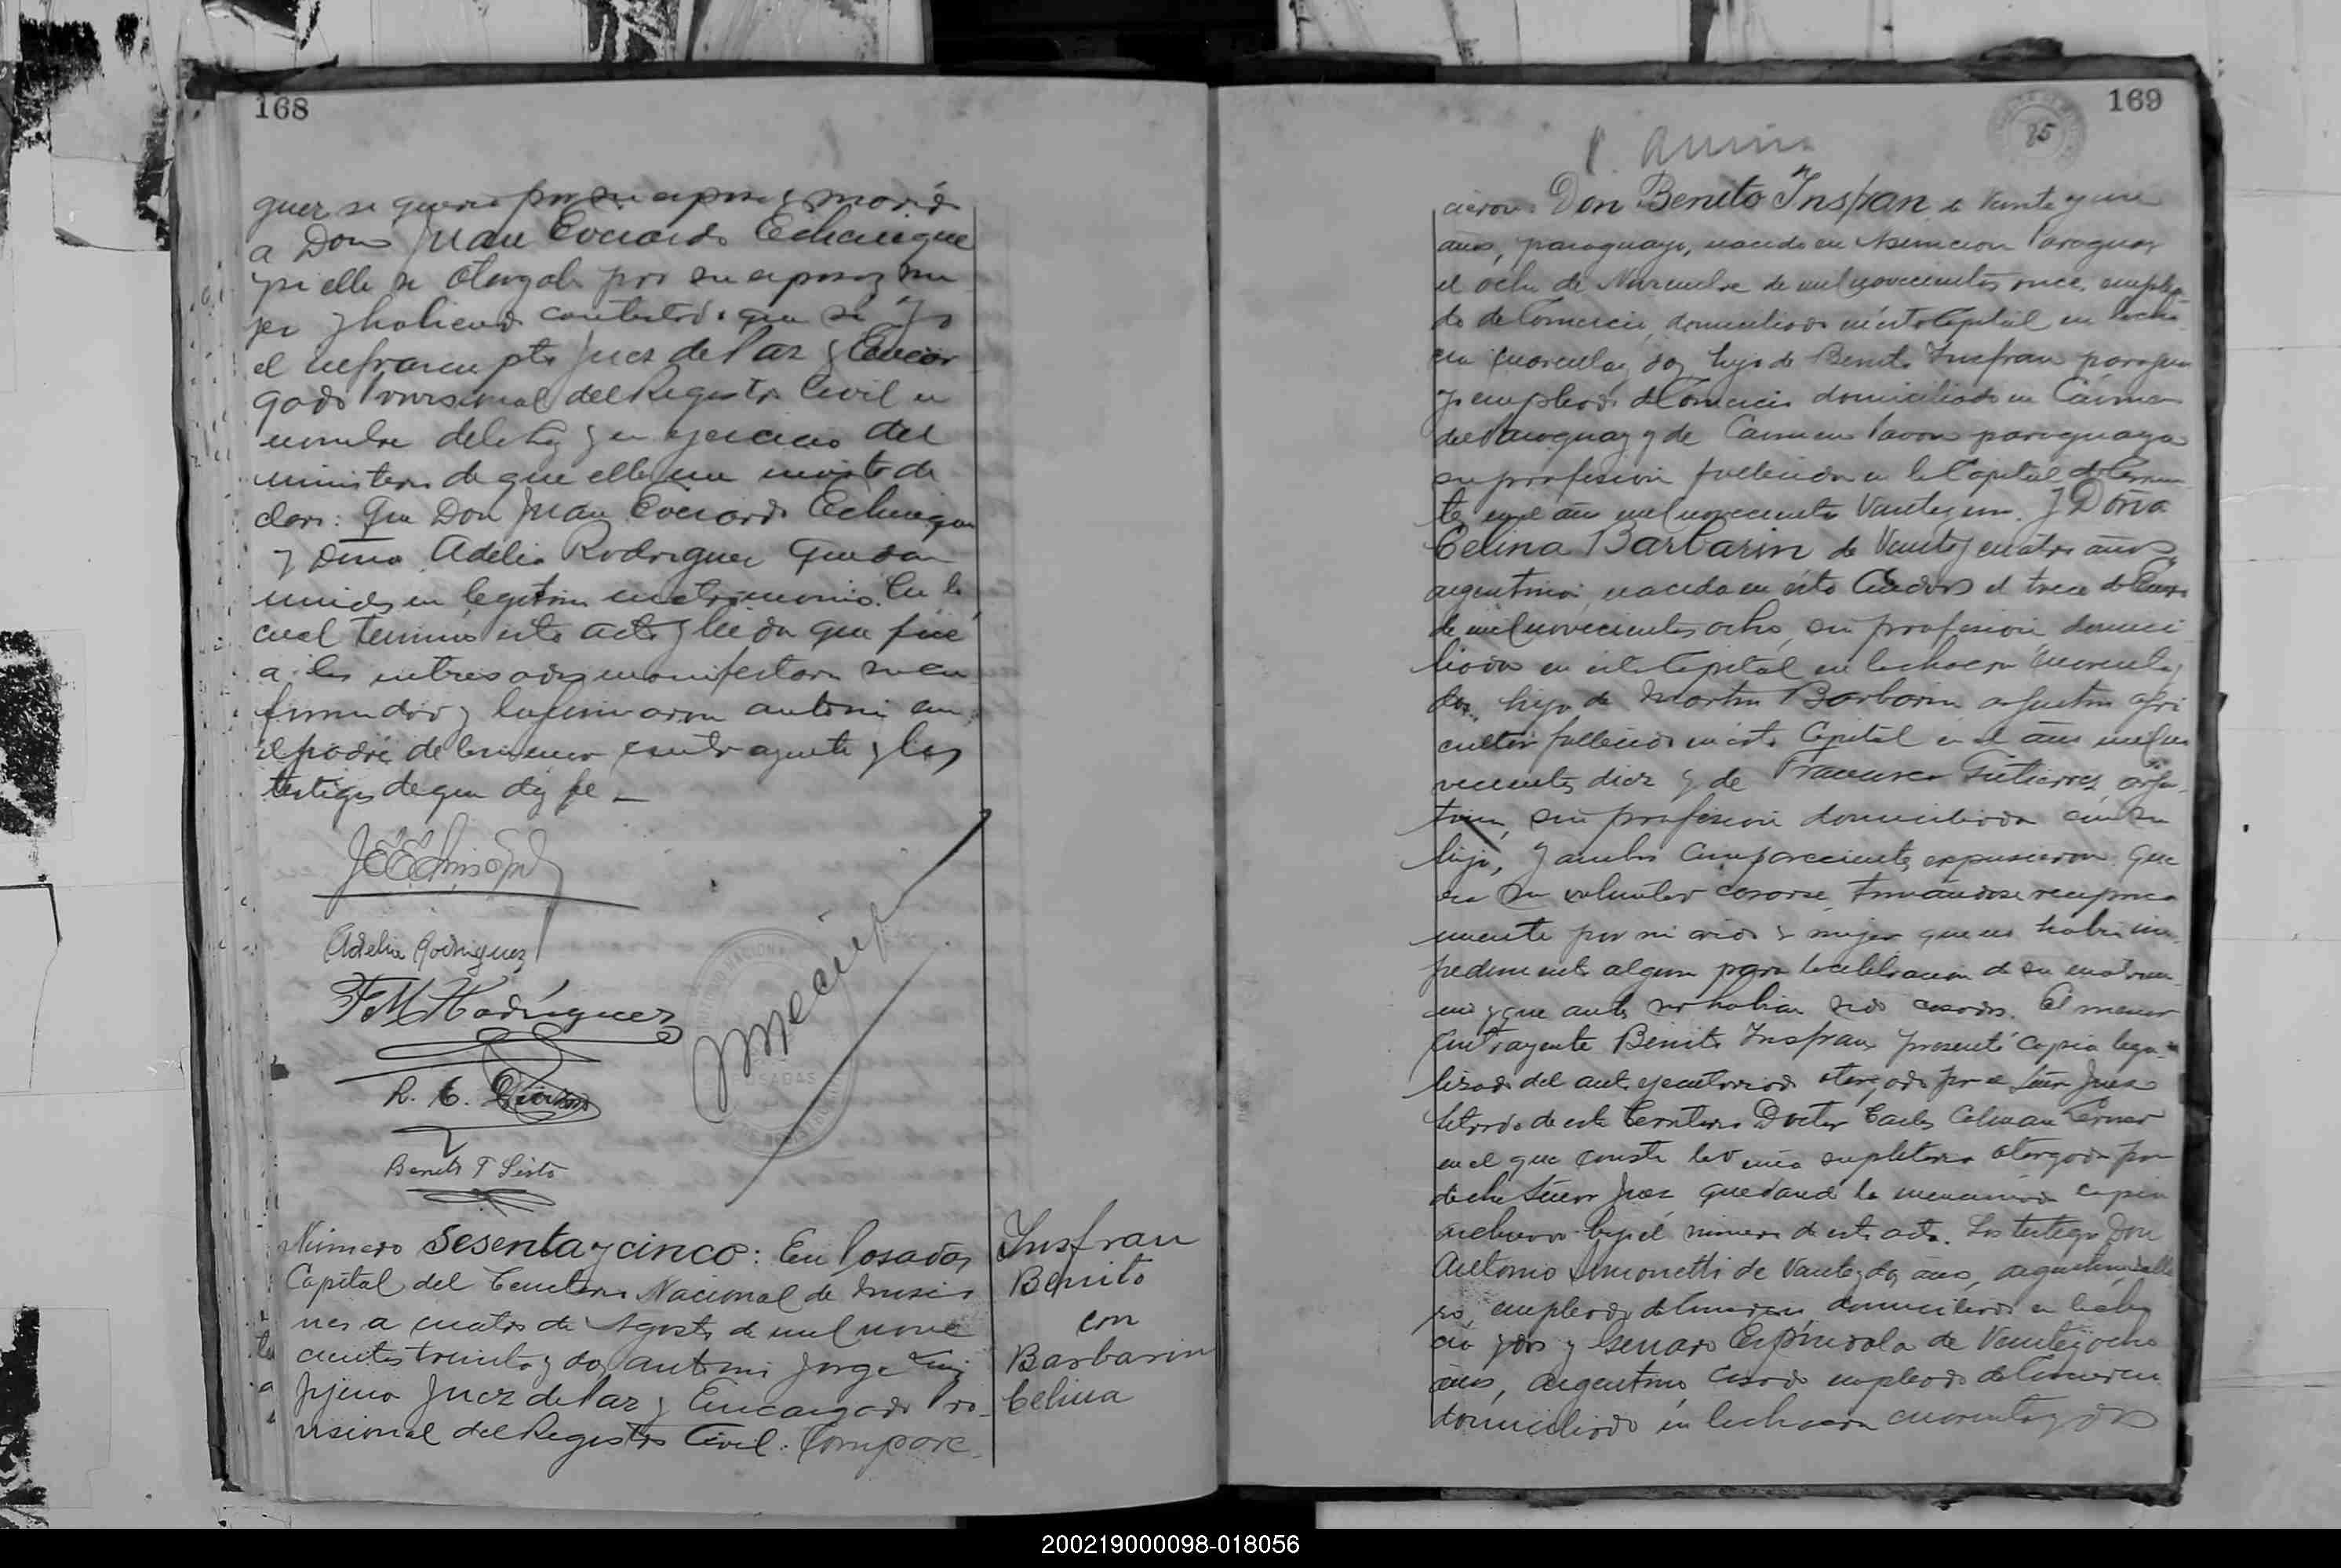 168
guez si queria por su esposo y marido
a Don Juan Everardo Echauque
y si ella se otorgaba por su esposa y mu
jer y habiendo contestado que si Yo
el infrascripto Juez de Paz y Encar
gado Provisional del Registro Civil en
nombre de la ley y en ejercicio del
ministerio de que ella me inviste de
claro: Que Don Juan Everardo
y Doña Adelia Rodriguez quedan
unidos en legitimo matrimonio. Con lo
cual terminó este acto y leida que fué
a los interesados manifestaron su con
formidad y la firmaron ante mi con
el padre de la menor contrayente y los
testigos de que doy fe —
Adelia Rodriguez
F M Rodríguez
R. C.
Benito T
Número Sesenta y cinco: En Posadas
Capital del Territorio Nacional de Misio
nes a cuatro de Agosto de mil nove
cientos treinta y dos, ante mi Jorge Luis
Juez de Paz y Encargado Pro-
visional del Registro Civil: Compare-
Insfran
Benito
con
Barbarin
Celina
169
85
cieron: Don Benito Insfran de Veinte y un
años, paraguayo, nacido en Asuncion Paraguay
el ocho de Noviembre de mil novecientos once, emplea-
do de Comercio, domiciliado en esta Capital en la cha
cra cuarenta y dos, hijo de Benito Insfran paragua
yo empleado de Comercio domiciliado en Carmen
del Paraguay y de Carmen Pavon paraguaya
sin profesion fallecida en la Capital de Corrien
tes en el año mil novecientos Veinte y uno. Y Doña
Celina Barbarin de Veinte y cuatro años
argentina, nacida en esta Ciudad el trece de Enero
de mil novecientos ocho, sin profesion domici
liada en esta Capital en la chacra cuarenta y
dos, hija de Martin Barbarin argentino agri
cultor fallecido en esta Capital en el año mil no
vecientos diez y de Francisca Gutierrez, argen-
tina, sin profesion domiciliada con su
hija, y ambos comparecientes expusieron: que
era su voluntad casarse, tomandose reciproca
mente por marido y mujer que no habia im-
pedimento alguno para la celebracion de su matrimo
nio y que antes no habian sido casados. El menor
contrayente Benito Insfran presentó copia lega-
lizada del auto ejecutoriado otorgado por el Señor Juez
Letrado de este Territorio Doctor Carlos Colman Lerner
en el que consta la venia supletoria otorgada por
dicho Señor Juez, quedando la mencionada copia
archivada bajo el número de esta acta. Los testigos Don
Antonio Simonetti de Veinte y dos años, argentino, solte
ro, empleado de Comercio domiciliado en la cha
cra y dos y Genaro Espíndola de Veinte y ocho
años, argentino, casado empleado de Comercio
domiciliado en la chacra cuarenta y dos
200219000098-018056